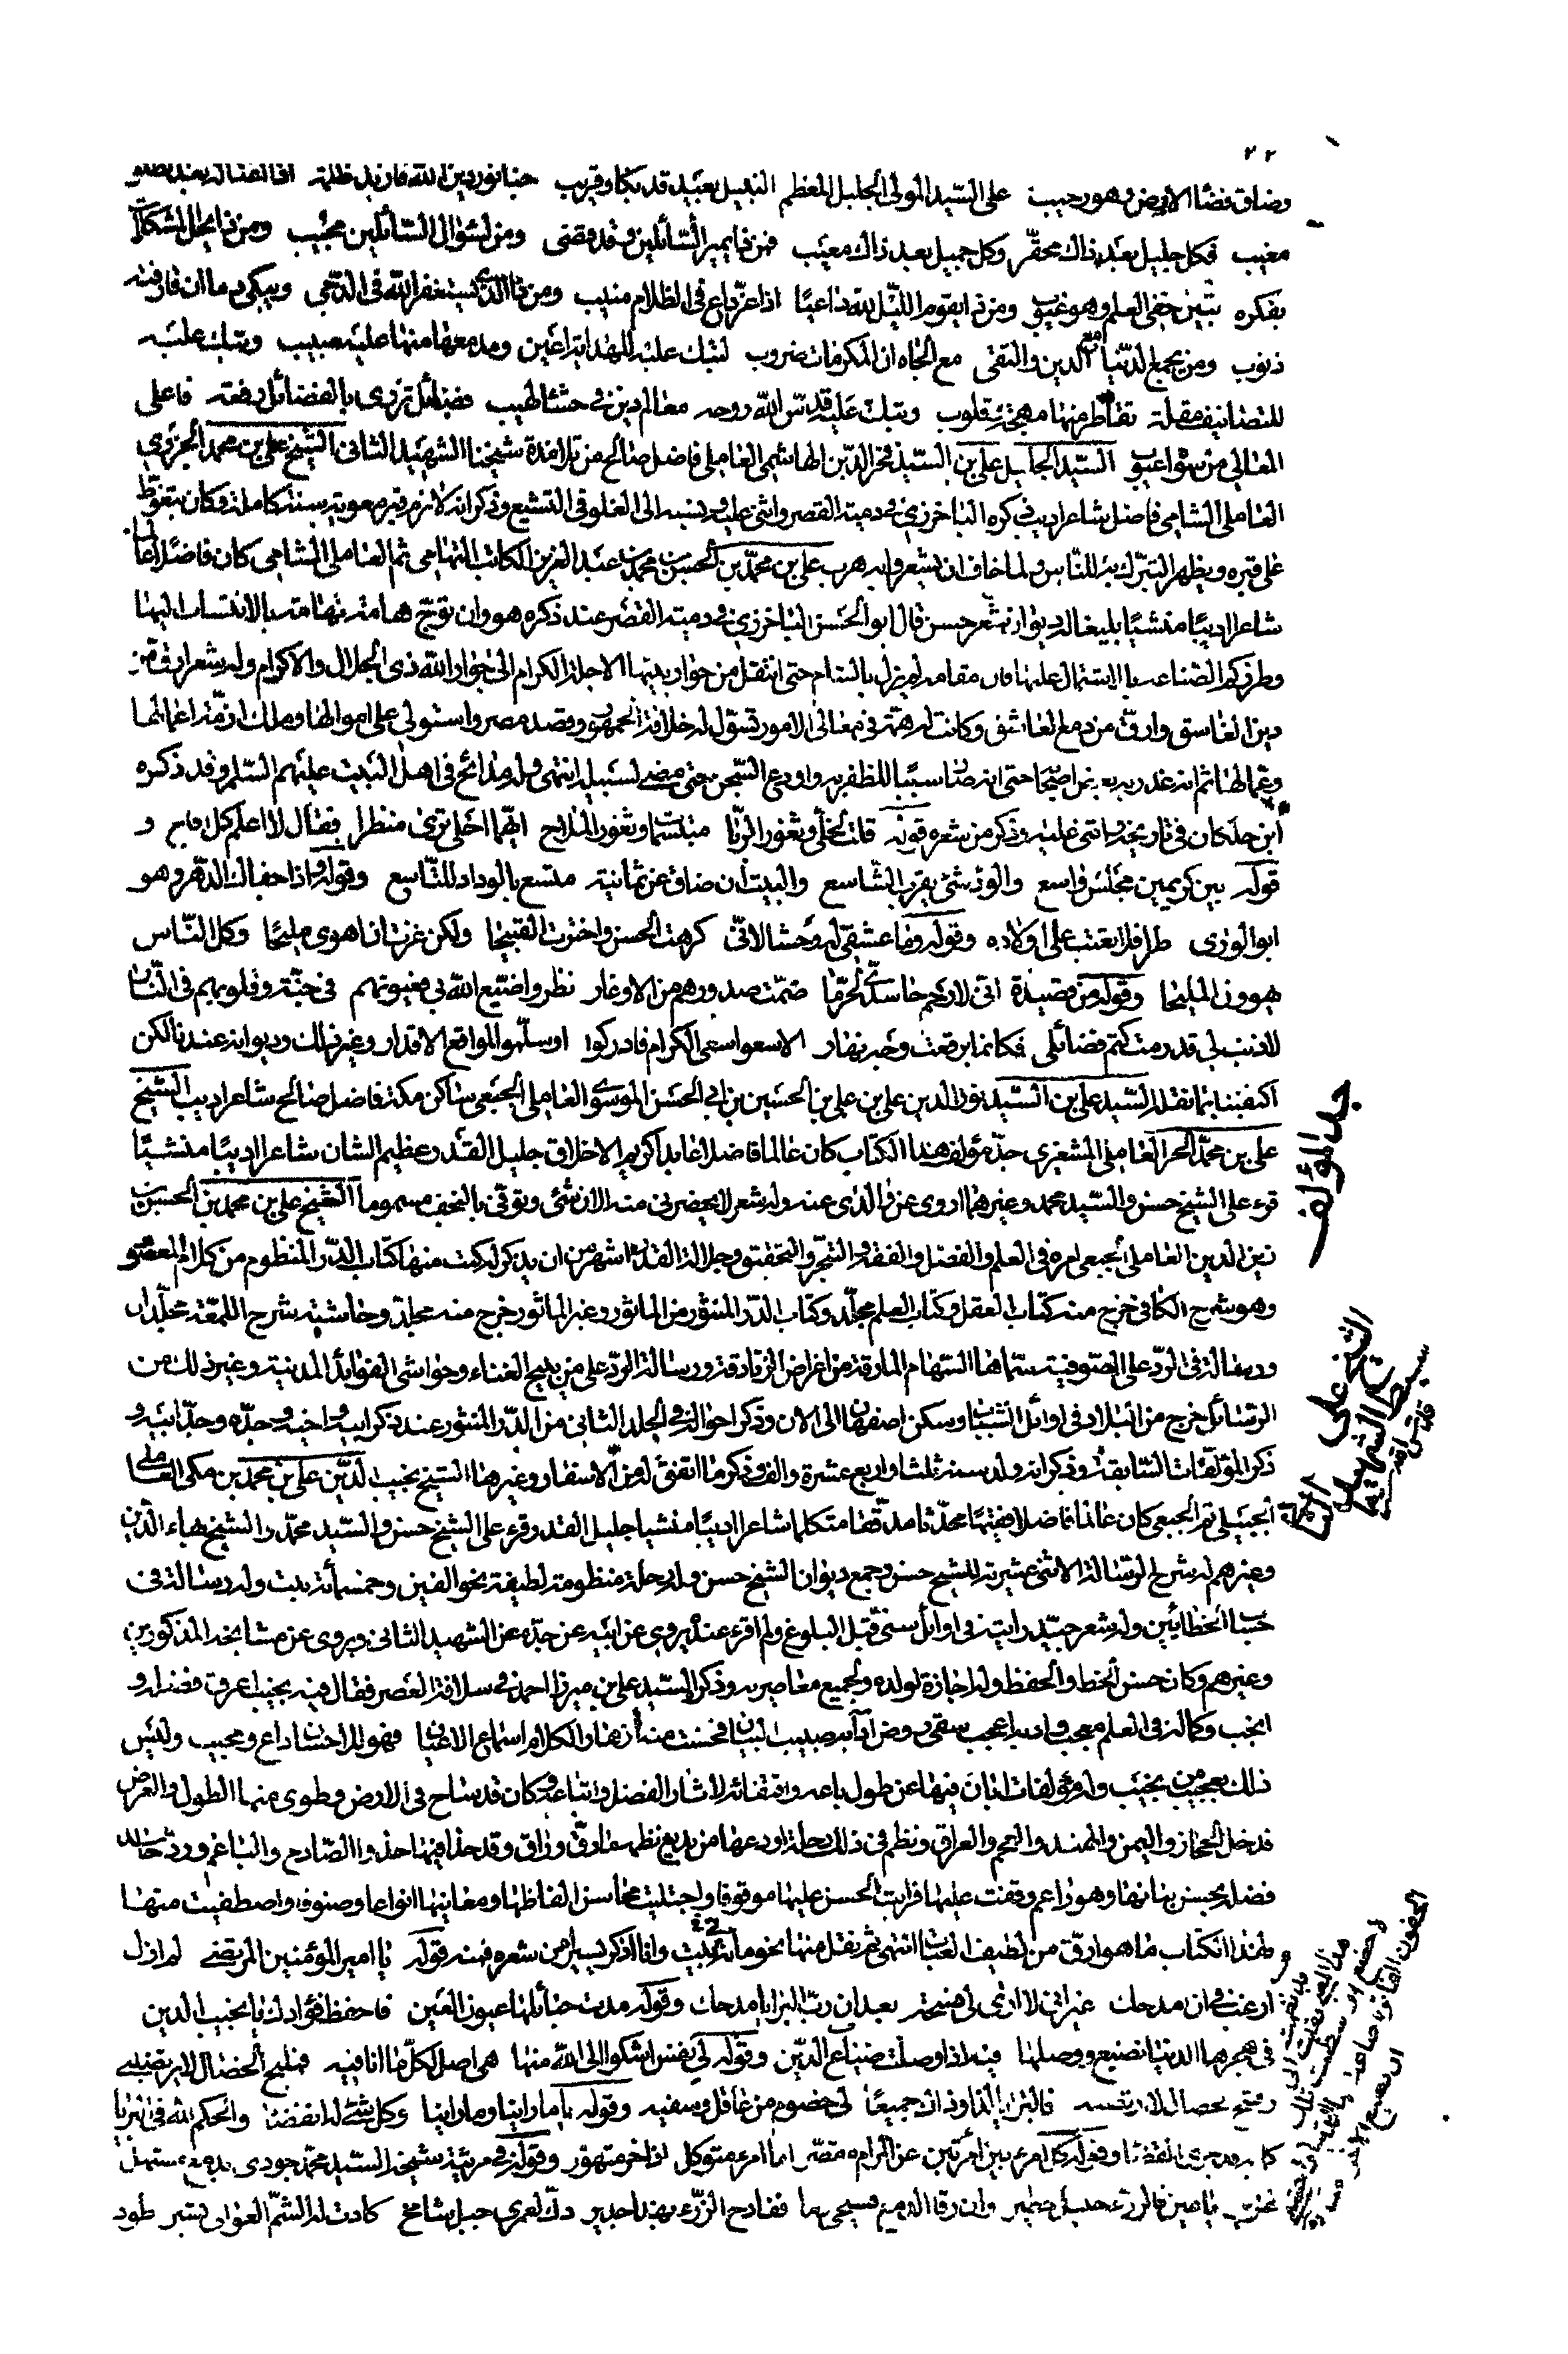 ٢٢
وضاق فضاء الارض وهو رحيب على السيد المولى الجليل المعظم النبيل بعيد قد بكا وقريب خبا نور دين الله فارتد ظلمة
مغيب فكل جليل بعد ذاك محقر وكل جميل بعد ذاك معيب فمن ذا يمير السائلين وقد قضى ومن لسؤال السائلين مجيب ومن ذا يحل المشكلات
بفكره تبين خفى العلم وهو غيوب ومن ذا يقوم الليل لله داعيا اذا عز داع فى الظلام منيب ومن ذا الذى يستغفر الله فى الدجى ويبكى دما ان قارفته
ذنوب ومن يجمع الدنيا مع الدين والتقى مع الجاه ان المكرمات ضروب لتبك عليه للهداية اعين ومدمعها منها عليه صبيب وتبك عليه
للتصانيف مقلة تقاطر منها مهجة وقلوب وتبك عليه قدس الله روحه معالم دين فى حشاها لهيب فضائل تزرى بالفضائل رفعة فاعلى
المعالى من سواه عيوب السيد الجليل على بن السيد فخر الدين الهاشمى العاملى فاضل صالح من تلامذة شيخنا الشهيد الثانى الشيخ على بن محمد الجزرى
العاملى الشامى فاضل شاعر اديب ذكره الباخرزى فى دمية القصر واثنى عليه ونسبه الى الغلو فى التشيع وذكر انه لازم قبر معوية سنة كاملة وكان يتغوط
على قبره ويظهر التبرك به للناس ولما خاف ان يشعروا به هرب على بن محمد بن الحسن بن محمد بن عبد العزيز الكاتب التهامى ثم العاملى الشامى كان فاضلا عالما
شاعرا اديبا منشيا بليغا له ديوان شعر حسن قال ابو الحسن الباخرزى فى دمية القصر عند ذكره هو وان توج هامة تهامة بالانتساب اليها
وطرز كم الصناعة بالاشتمال عليها فان مقامه لم يزل بالشام حتى انتقل من جوار بنيها الاجلة الكرام الى جوار الله ذى الجلال والاكرام وله شعر ادق من
دين الفاسق وارق من دمع العاشق وكانت له همة فى معالى الامور تسول له خلافة الجمهور وقصد مصر واستولى على اموالها وملك ازمة اعمالها
وعمالها ثم انه غدر به بعض اصحابه حتى انه صار سببا للظفر به واودع السجن حتى مضى لسبيله انتهى وله مدائح فى اهل البيت عليهم السلم وقد ذكره
ابن خلكان فى تاريخه واثنى عليه وذكر من شعره قوله قلت لخلى وثغور الربا مبتسمات وثغور الملاح ايهما احلى ترى منظرا فقال لا اعلم كل اقاح و
قوله بين كريمين مجلس واسع والود شىء يقرب الشاسع والبيت ان ضاق عن ثمانية متسع بالوداد للتاسع وقوله واذا جفاك الدهر وهو
ابو الورى طرا فلا تعتب على اولاده وقوله وما عشقى له وحشا لانى كرهت الحسن واخترت القبيحا ولكن غرت ان اهوى مليحا وكل الناس
يهوون المليحا وقوله من قصيدة انى لارحم حاسدى لحر ما ضمت صدورهم من الاوغار نظروا صنيع الله بى فعيونهم فى جنة وقلوبهم فى النار
لا ذنب لى قد رمت كتم فضائلى فكانما برقعت وجه نهار الا سعوا سعى الكرام فادركوا او سلموا لمواقع الاقدار وغير ذلك وديوانه عندنا لكن
اكتفينا بما نقل السيد على بن السيد نور الدين على بن على بن الحسين بن ابى الحسن الموسوى العاملى الجبعى ساكن مكة فاضل صالح شاعر اديب الشيخ
على بن محمد الحر العاملى المشغرى جد مؤلف هذا الكتاب كان عالما فاضلا عابدا كريم الاخلاق جليل القدر عظيم الشان شاعرا اديبا منشيا
قرء على الشيخ حسن والسيد محمد وغيرهما اروى عن والدى عنه وله شعر لا يحضرنى منه الان شىء وتوفى بالنجف مسموما الشيخ على بن محمد بن الحسن بن
زين الدين العاملى الجبعى امره فى العلم والفضل والفقه والتبحر والتحقيق وجلالة القدر اشهر من ان يذكر له كتب منها كتاب الدر المنظوم من كلام المعصوم
وهو شرح الكافى خرج منه كتاب العقل وكتاب العلم مجلد وكتاب الدر المنثور من الماثور وغير الماثور خرج منه مجلد وحاشية شرح اللمعة مجلدان
ورسالة فى الرد على الصوفية سماها السهام المارقة من اغراض الزنادقة ورسالة الرد على من يبيح الغناء وحواشى الفوائد المدنية وغير ذلك من
الرسائل خرج من البلاد فى اوائل الشباب وسكن اصفهان الى الان وذكر احواله فى المجلد الثانى من الدر المنثور عند ذكر ابيه واخيه وجده وجد ابيه و
ذكر المؤلفات السابقة وذكر انه ولد سنة ثلث او اربع عشرة والف وذكر ما اتفق له من الاسفار وغيرها الشيخ نجيب الدين على بن محمد بن مكى العاملى
الجبيلى ثم الجبعى كان عالما فاضلا فقيها محدثا مدققا متكلما شاعرا اديبا منشيا جليل القدر قرء على الشيخ حسن والسيد محمد والشيخ بهاء الدين
وغيرهم له شرح الرسالة الاثنى عشرية للشيخ حسن وجمع ديوان الشيخ حسن وله رحلة منظومة لطيفة نحو الفين وخمسمائة بيت وله رسالة فى
حساب الخطائين وله شعر جيد رايته فى اوائل سنى قبل البلوغ ولم اقرء عنده يروى عن ابيه عن جده عن الشهيد الثانى ويروى عن مشايخه المذكورين
وغيرهم وكان حسن الخط والحفظ وله اجازة لولده ولجميع معاصريه وذكره السيد على بن ميرزا احمد فى سلافة العصر فقال فيه نجيب اعرق فضله و
انجب وكماله فى العلم معجب وادبه اعجب سقى روض آدابه صيب البيان فجنت منه ازهار الكلام اسماع الاعيان فهو للاحسان داع ومجيب وليس
ذلك بعجيب من نجيب وله مؤلفات ابان فيها عن طول باعه واقتفائه لاثار الفضل واتباعه وكان قد ساح فى الارض وطوى منها الطول والعرض
فدخل الحجاز واليمن والهند والعجم والعراق ونظم فى ذلك رحلة اودعها من بديع نظمه ما رق وراق وقد حذا فيها حذو الصادح والباغم ورد حاسد
فضله بحسن بيانها وهو راغم وقفت عليها فرايت الحسن عليها موقوفا واجتليت محاسن الفاظها ومعانيها انواعا وصنوفا واصطفيت منها
لهذا الكتاب ما هو ارق من لطيف العتاب انتهى ثم نقل منها نحو مائة بيت وانا اذكر يسيرا من شعره فمنه قوله يا امير المؤمنين المرتضى لم ازل
ارغب فى ان امدحك غير انى لا ارى لى فسحة بعد ان رب البرايا مدحك وقوله مدت حبائلها عيون العين فاحفظ فؤادك يا نجيب الدين
فى هجرها الدنيا تضيع ووصلها فيه اذا وصلت ضياع الدين وقوله لى نفس اشكو الى الله منها هى اصل لكل ما انا فيه فمليح الخصال لا يرتضينى
وقبيح الخصال لا ارتضيه فالبرايا لذا وذاك جميعا لى خصوم من عاقل وسفيه وقوله يا ما راينا وما راينا وكل شىء له انقضا والحكم لله فى البرايا
كل امرء بين امرين عن المرام مقصر اما امرء متوكل او اخر متهور وقوله فى مرثية شيخه السيد محمد جودى بدمع مستهل
غزير يا عين فالرزء جليل خطير وان رقا الدمع فسحى دما ففادح الرزء بهذا جدير دك لعمرى جبل شامخ كادت له الشم العوالى تسير طود
جد المؤلف
الشيخ على سبط الشهيد الثانى